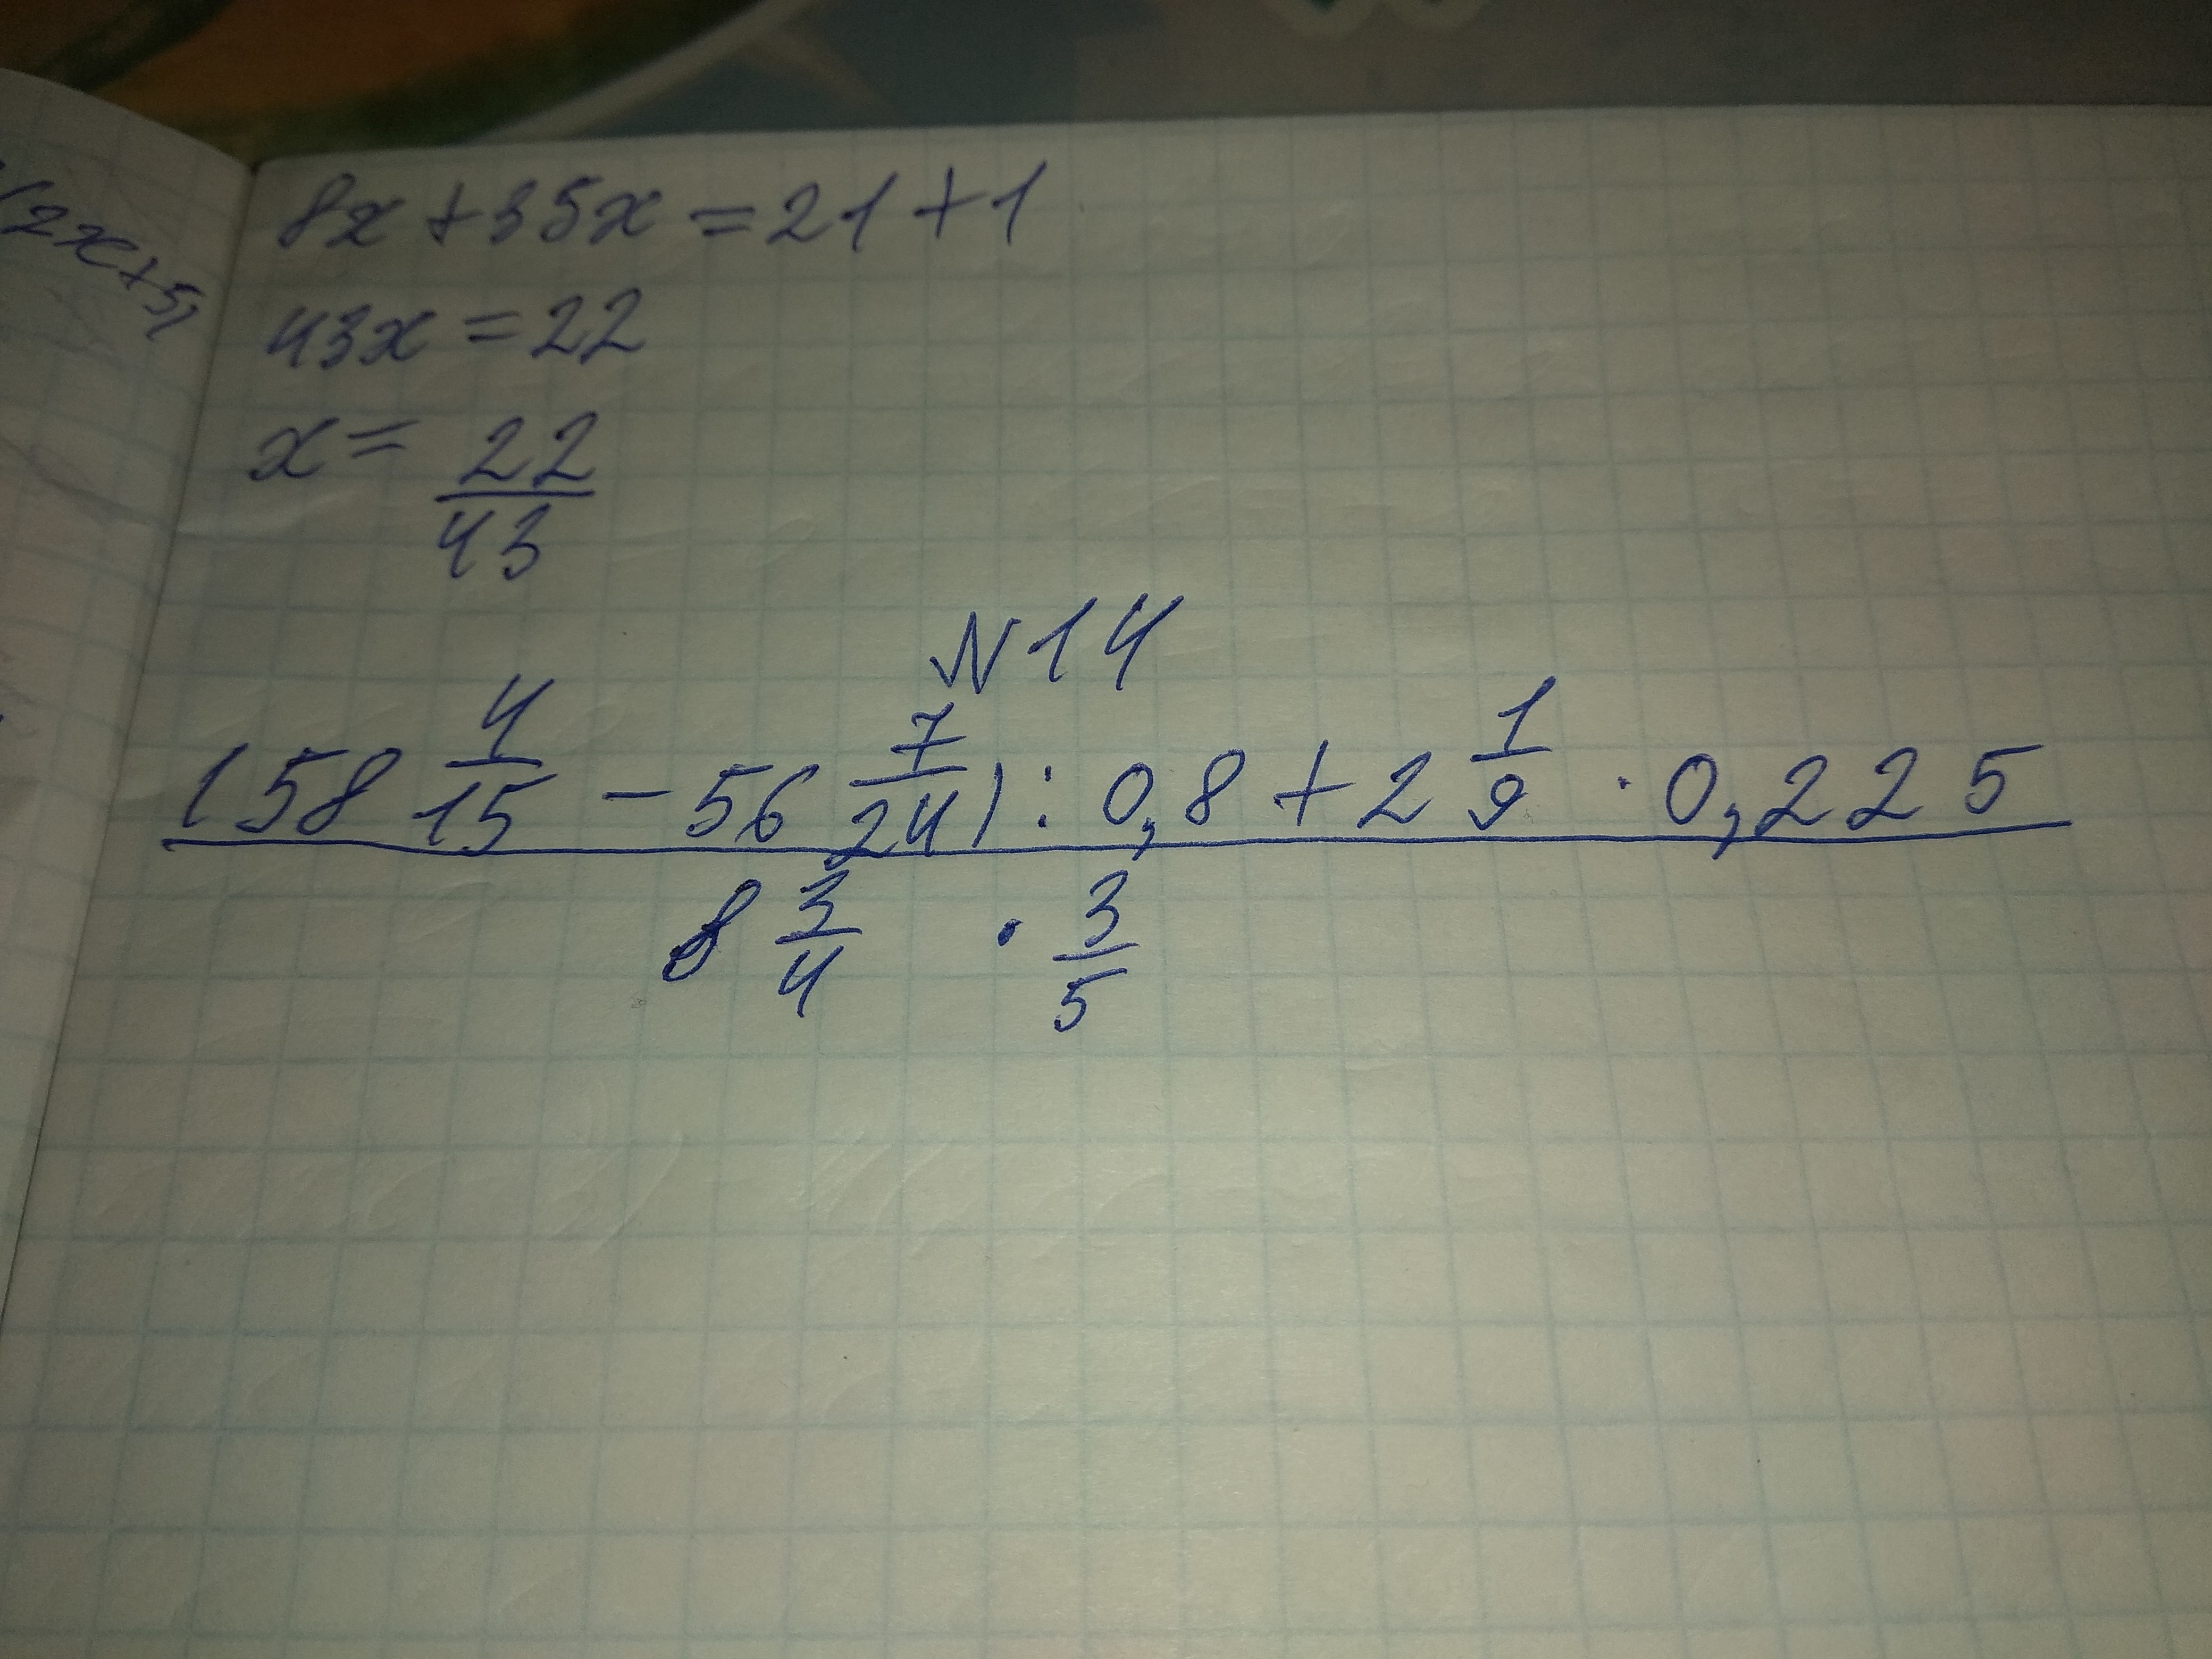 (2x+5)
8x+35x=21+1
43x=22
x= 22/43
N14
(58 4/15 - 56 7/24) : 0,8 + 2 1/9 · 0,225
8 3/4 · 3/5